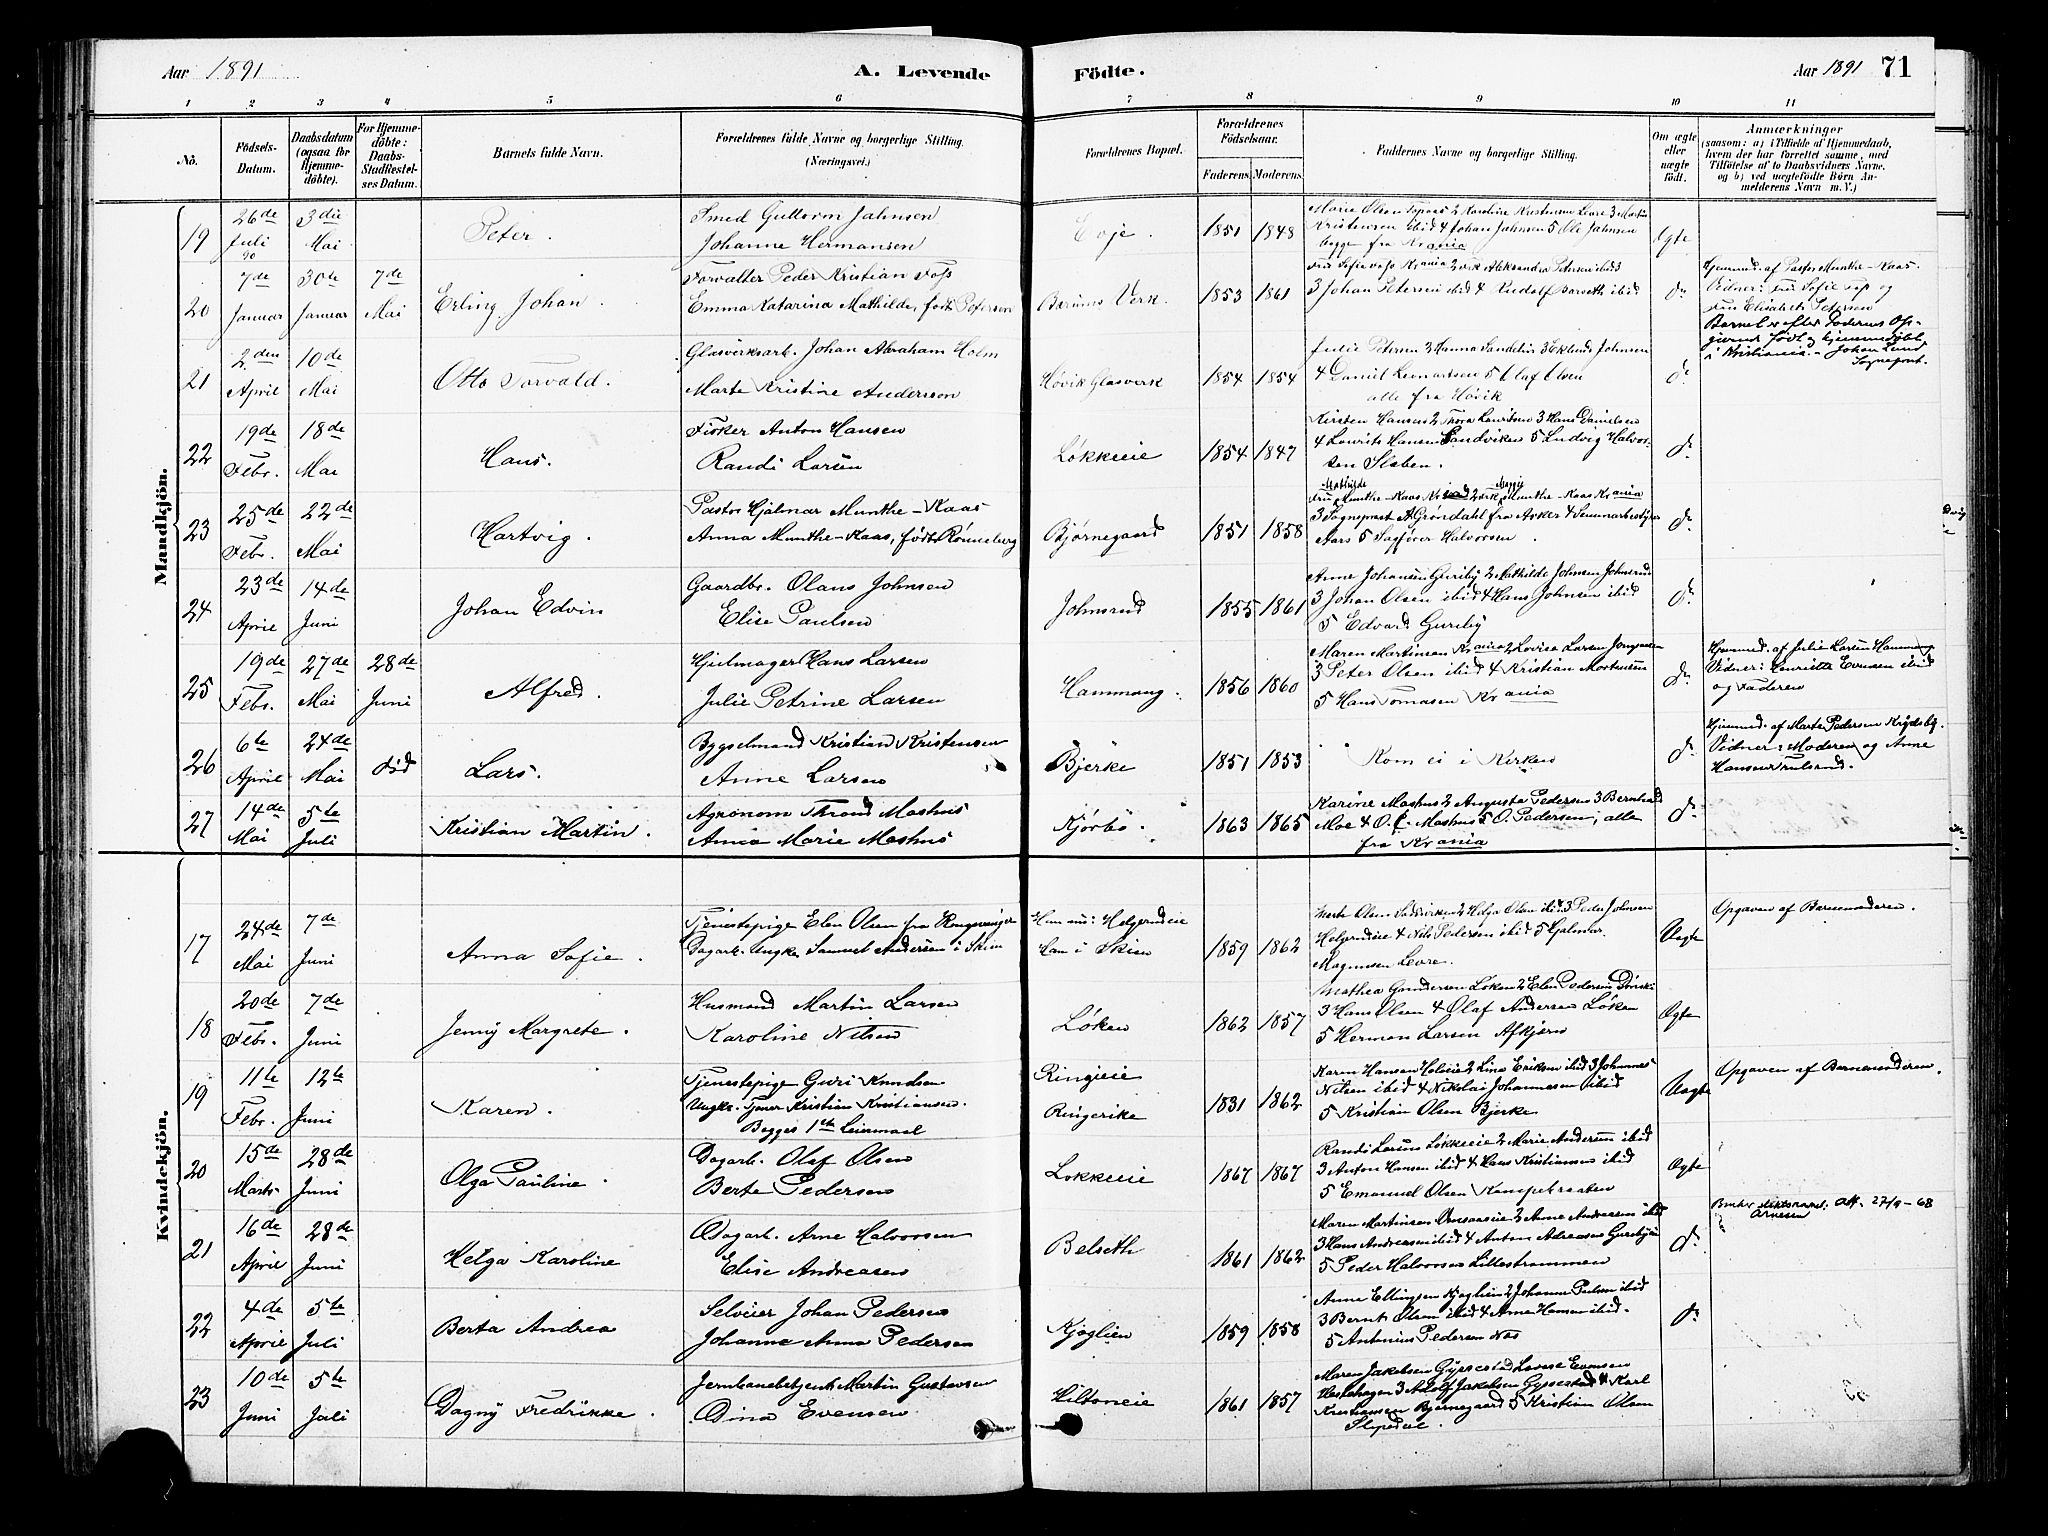 Aar 1891
A. Levende
Födte.
Aar 1891 71
1 2 3 4 5 6 7 8 9 10 11
No.
Födsels-Datum.
Daabsdatum (ogsaa for Hjemme-döbte).
For Hjemme-döbte: Daabs-Stadfæstel-ses Datum.
Barnets fulde Navn.
Forældrenes fulde Navne og borgerlige Stilling. (Næringsvei.)
Forældrenes Bopæl.
Forældrenes Födselsaar.
Faderens Moderens
Faddernes Navne og borgerlige Stilling.
Om ægte eller uægte födt.
Anmærkninger
(saasom: a) i Tilfælde af Hjemmedaab, hvem der har forrettet samme, med Tilföielse af to Daabsvidners Navne. og b) ved uægtefödte Börn An-melderens Navn m. V.)
Mandkjön.
19 26de Juli 90 3die Mai
Peter.
Smed Guttorm Jahnsen
Johanne Hermansen
Evje. 1851 1848
Kristensen ibid 4 Johan Jahnsen 5 Ole Jahnsen
begge fra Krania
Ægte
20 7de Januar 30te Januar 7de Mai
Erling Johan.
Forvalter Peder Kristian Foss
Emma Katarina Mathilde, født Petersen
Bærums Verk. 1853 1861
3 Johan Petersen ibid 4 Rudolf Borseth ibid
do
Hjemmed. af Pastor Munthe-Kaas.
Vidner: Fru Sofie Foss og
Fru Elisabeth Petersen
Barnet er efter Faderens Op-
givende født og hjemmedøbt
i Kristiania. - Johan Lund
Sognepræst.
21 2den April 10de Mai
Otto Torvald.
Glasverksarb. Johan Abraham Holm
Marte Kristine Andersson
Høvik Glasverk 1854 1854
Julie Petersen 2 Hanna Sandelin 3 Eklund Johnsen
4 Daniel Lenartsen 5 Olaf Olsen
alle fra Høvik
do
22 19de Febr. 18de Mai
Hans.
Fisker Anton Hansen
Randi Larsen
Løkkeeie 1854 1847
Kirsten Hansen 2 Thora Lauritsen 3 Hans Danielsen
4 Laurits Hansen Sandviken 5 Ludvig Halvor-
sen Slaben.
do
23 25de Febr. 22de Mai
Hartvig.
Pastor Hjalmar Munthe-Kaas
Anna Munthe-Kaas, født Rønneberg
Bjørnegaard 1851 1858
3 Sognepræst A Grøndahl fra Asker 4 Seminarbestyrer
Aars 5 Sagfører Halvorsen
do
24 23de April 14de Juni
Johan Edvin
Gaardbr. Olaus Johnsen
Elise Paulsen
Johnsrud 1855 1861
Anne Johansen Gureby 2 Mathilde Johnsen Johnsrud
3 Johan Olsen ibid 4 Hans Johnsen ibid
5 Edvard Gureby
do
25 19de Febr. 27de Mai 28de Juni
Alfred.
Hjulmager Hans Larsen
Julie Petrine Larsen
Hammang. 1856 1860
3 Peter Olsen ibid 4 Kristian Mortensen
5 Hans Tomasen Krania
do
Hjemmed. af Julie Larsen Hammang
Vidner: Henriette Evensen ibid
og Faderen
26 6te April 24de Mai død
Lars.
Bygselmand Kristian Kristensen
Anne Larsen
Bjerke 1851 1853
Kom ei i Kirken
do
Vidner: Moderen og Anne
27 14de Mai 5te Juli
Kristian Martin.
Agronom Thrond Moshus
Anna Marie Moshus
Kjørbo. 1863 1865
Karine Moshus 2 Augusta Pedersen 3 Bernhard
Moe 4 O. C. Moshus 5 O. Pedersen, alle
fra Krania
do
Kvindekjön.
17 24de Mai 7de Juni
Anna Sofie.
Tjenestepige Elen Olsen fra Kongsvinger
Dagarb. Ungk. Samuel Andersen i Skien
Hun nu: Helgerudeie
Han i Skien
1859 1862
Helgerudeie 4 Nils Pedersen ibid 5 Hjalmar
Magnusen Levre.
Uægte
Opgaven af Barnemoderen.
18 20de Febr. 7de Juni
Jenny Margrete.
Husmand Martin Larsen
Karoline Nilsen
Løken 1862 1857
3 Hans Olsen 4 Olaf Andersen Løken
5 Herman Larsen Afkjern
Ægte
19 11te Febr. 12te Juni
Karen.
Tjenestepige Guri Knudsen
Ungk. Tjener Kristian Kristiansen.
Begges 1ste Leiermaal
Ringieie
Ringerike
1831 1862
Karen Hansen Holeie 2 Lina Eriksen ibid 3 Johannes
Nilsen ibid 4 Nikolai Johannesen ibid
5 Kristian Olsen Bjerke
Uægte
Opgaven af Barnemoderen.
20 15de Marts 28de Juni
Olga Pauline.
Dagarb. Olaf Olsen
Berte Pedersen
Løkkeeie 1867 1867
Randi Larsen Løkkeeie 2 Marie Andersen ibid
3 Anton Hansen ibid 4 Hans Kristiansen ibid
5 Emanuel Olsen Kampebraaten
Ægte
21 16de April 28de Juni
Helga Karoline
Dagarb. Arne Halvorsen
Elise Andreasen
Belseth 1861 1862
3 Hans Andreasen ibid 4 Anton Adreasen Gureby
5 Peder Halvorsen Lillestrømmen
do
Arnesen att. 27/9-68
22 4de April 5te Juli
Berta Andrea
Selveier Johan Pedersen
Johanne Anna Pedersen
Kjøglien 1859 1858
Anne Ellingsen Kjøglien 2 Johanne Paulsen ibid
3 Bernt Olsen ibid 4 Arne Hansen ibid.
5 Antonius Pedersen Næs
do
23 10de Juni 5te Juli
Dagny Fredrikke.
Jernbanebetjent Martin Gustavsen
Dina Evensen
Hiltoneie 1861 1857
Kristiansen Bjørnegaard 5 Kristian Olsen